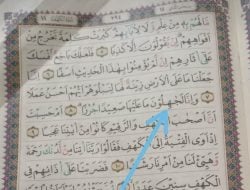 مَّا لَهُم بِهِۦ مِنْ عِلْمٍ وَلَا لِءَابَآئِهِمْ كَبُرَتْ كَلِمَةً تَخْرُجُ مِنْ
أَفْوَٰهِهِمْ إِن يَقُولُونَ إِلَّا كَذِبًا ٥ فَلَعَلَّكَ بَٰخِعٌ
إِن لَّمْ يُؤْمِنُوا۟ بِهَٰذَا ٱلْحَدِيثِ أَسَفًا ٦ إِنَّا
جَعَلْنَا مَا عَلَى ٱلْأَرْضِ زِينَةً لَّهَا لِنَبْلُوَهُمْ أَيُّهُمْ أَحْسَنُ عَمَلًا
٧ وَإِنَّا مَا عَلَيْهَا صَعِيدًا جُرُزًا ٨ أَمْ حَسِبْتَ
أَنَّ أَصْحَٰبَ ٱلْكَهْفِ وَٱلرَّقِيمِ كَانُوا۟ مِنْ ءَايَٰتِنَا عَجَبًا ٩
إِذْ أَوَى ٱلْفِتْيَةُ إِلَى ٱلْكَهْفِ فَقَالُوا۟ رَبَّنَآ ءَاتِنَا مِن لَّدُنكَ رَحْمَةً
وَهَيِّئْ لَنَا مِنْ أَمْرِنَا رَشَدًا ١٠ فَضَرَبْنَا عَلَىٰٓ ءَاذَانِهِمْ فِى
ٱلْكَهْفِ سِنِينَ عَدَدًا